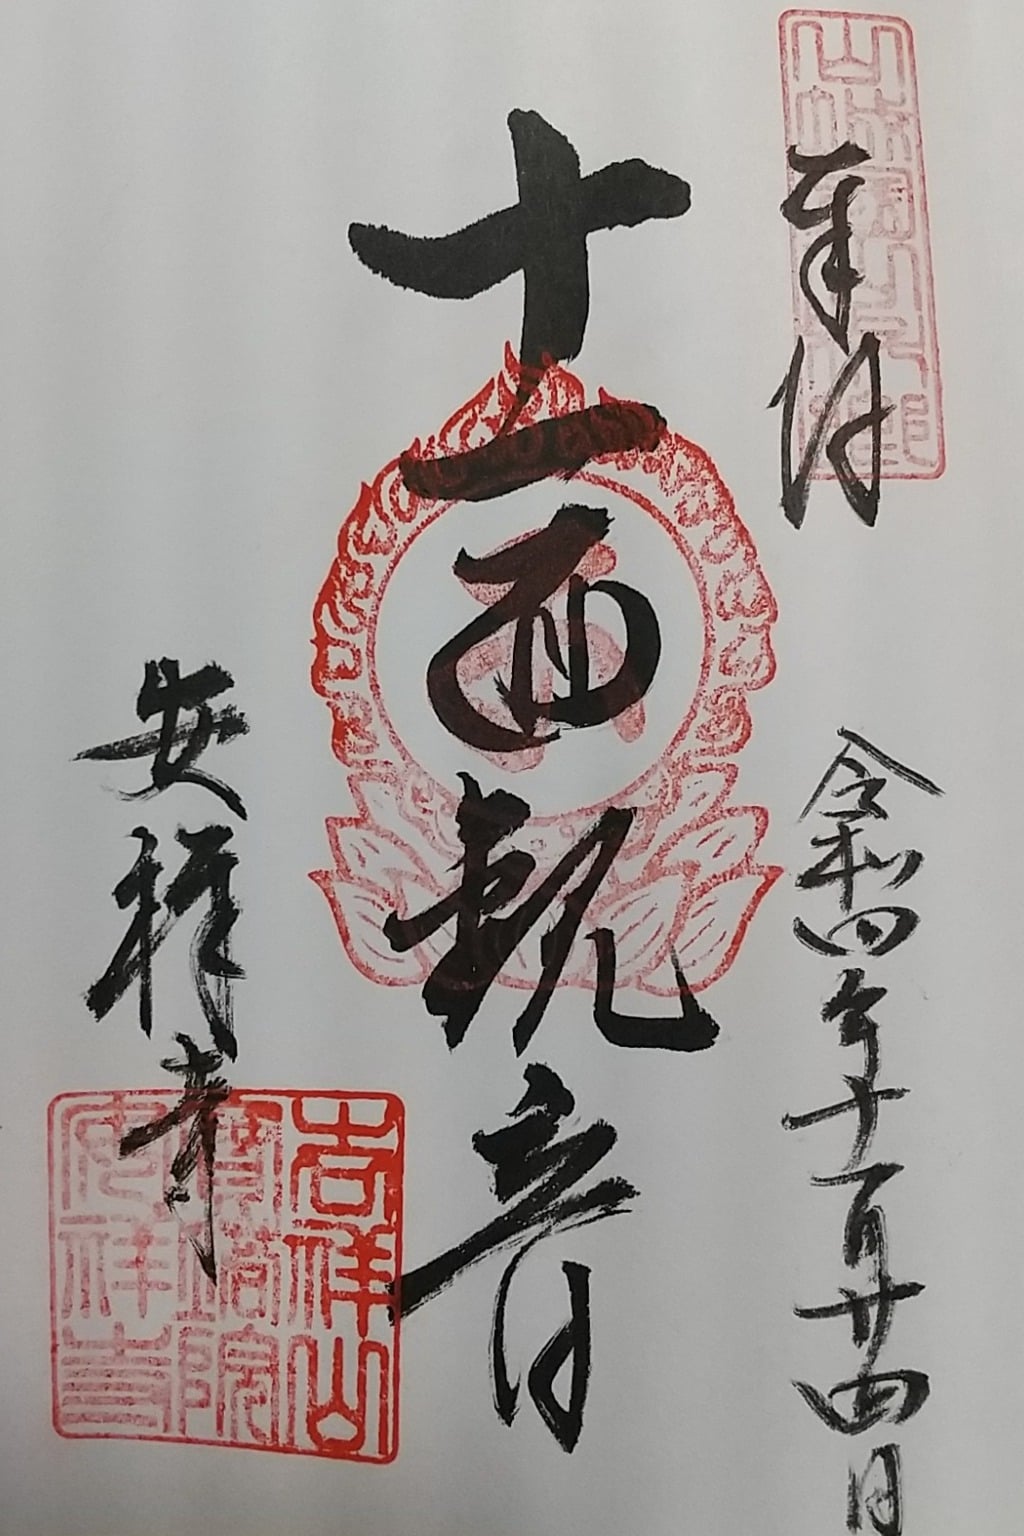 奉拝
令和四年十一月廿四日
十一面観音
安祥寺
吉祥山
寶塔院
安祥寺